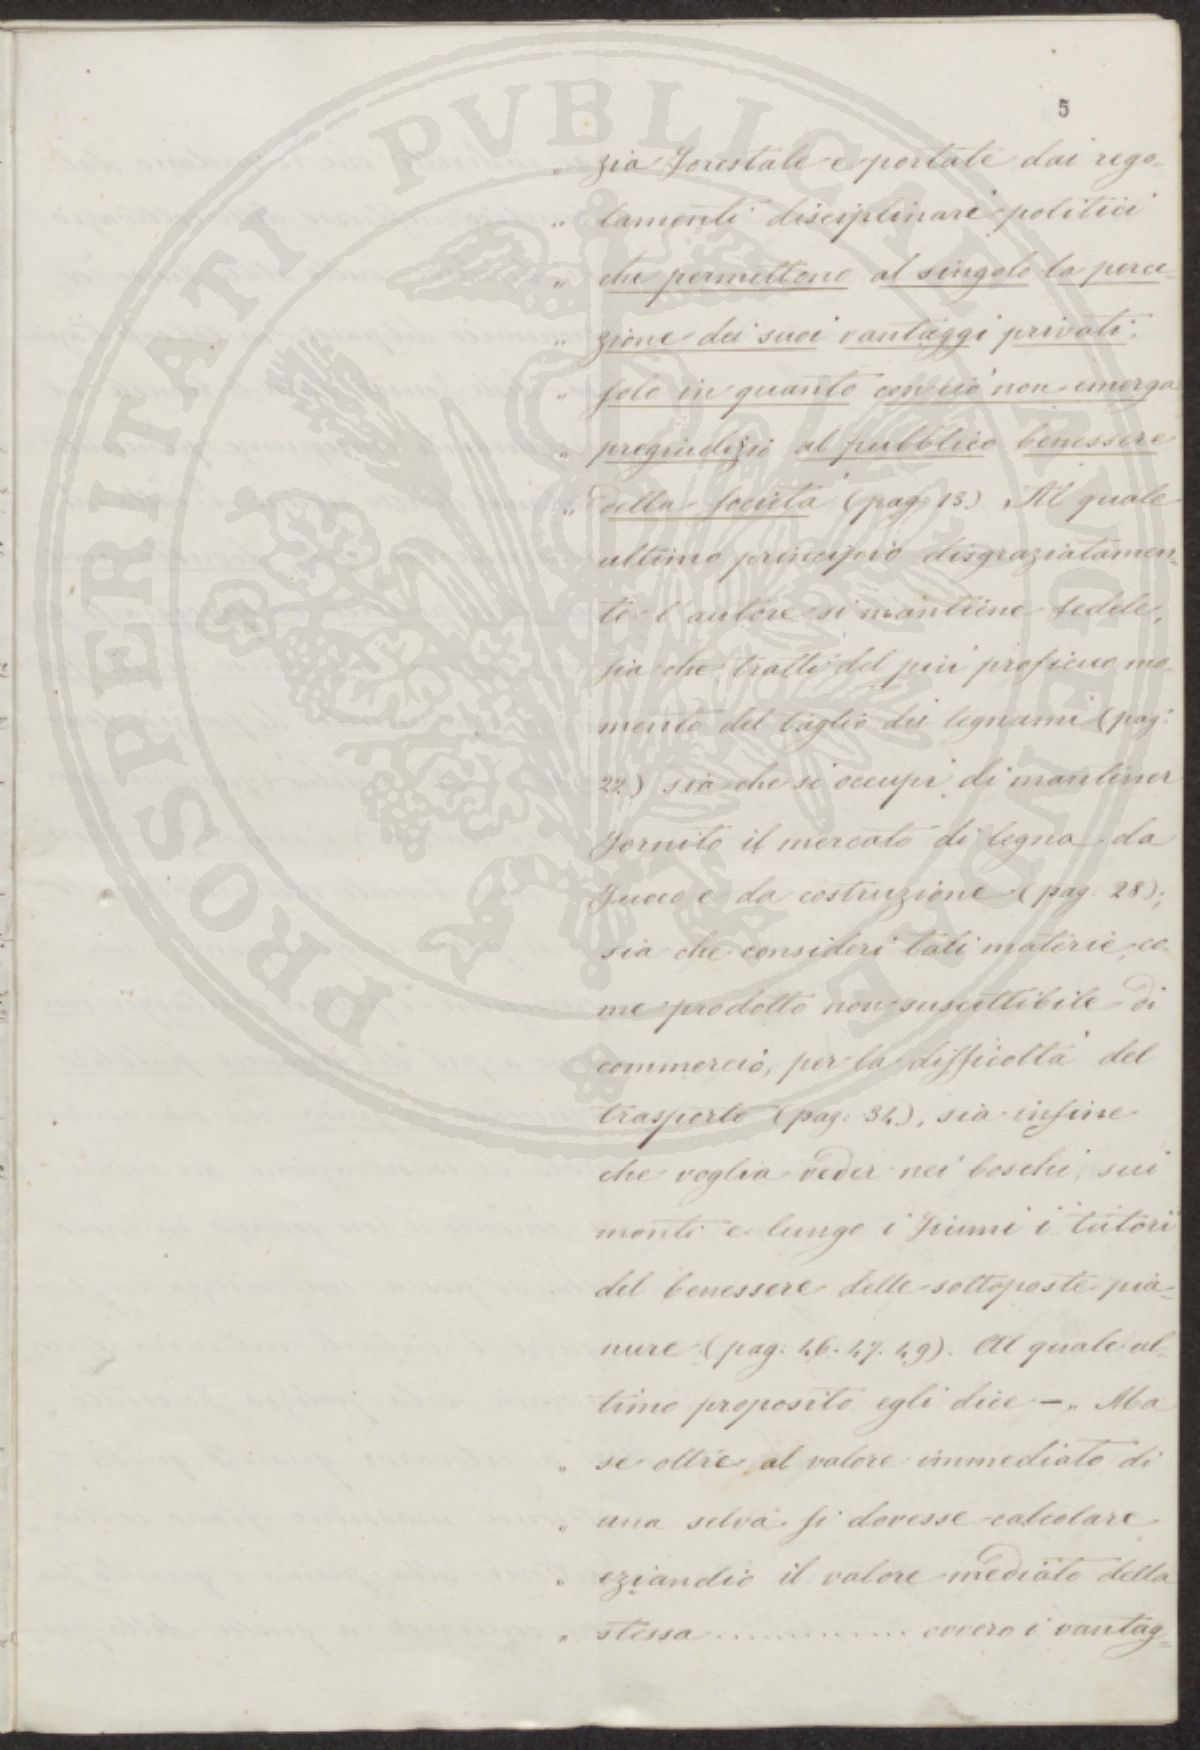 5
„ zia forestale e portate dai rego-
„ lamenti disciplinari politici
„ che permettono al singolo la perce-
„ zione dei suoi vantaggi privati,
„ solo in quanto con ciò non emerga
„ pregiudizio al pubblico benessere
„ della società (pag: 13). Al quale
ultimo principio disgraziatamen-
te l'autore si mantiene fedele,
sia che tratti del più proficuo mo-
mento del taglio dei legnami (pag:
22) sia che si occupi di mantener
fornito il mercato di legna da
fuoco e da costruzione (pag: 28);
sia che consideri tali materie co-
me prodotto non suscettibile di
commercio, per la difficoltà del
trasporto (pag: 34), sia infine
che voglia veder nei boschi, sui
monti e lungo i fiumi i tutori
del benessere delle sottoposte pia-
nure (pag: 46. 47. 49). Al quale ul-
timo proposito egli dice – „ Ma
„ se oltre al valore immediato di
„ una selva si dovesse calcolare
„ eziandio il valore mediato della
„ stessa ............. ovvero i vantag-
PROSPERITATI PUBLICAE AUGENDAE